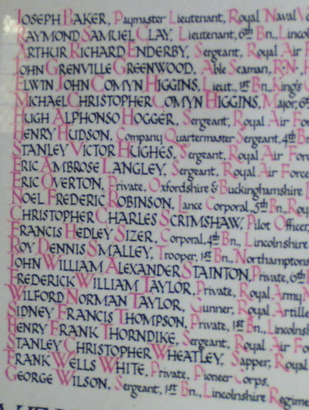 JOSEPH BAKER, Paymaster Lieutenant, Royal Naval
RAYMOND SAMUEL CLAY, Lieutenant, 6th Bn., Lincol
ARTHUR RICHARD ENDERBY, Sergeant, Royal Air F
JOHN GRENVILLE GREENWOOD, Able Seaman, R.N.
ELWIN JOHN COMYN HIGGINS, Lieut., 1st Bn., King's
MICHAEL CHRISTOPHER COMYN HIGGINS, Major, 6th
HUGH ALPHONSO HOGGER, Sergeant, Royal Air Fo
HENRY HUDSON, Company Quartermaster Sergeant, 4th Bn
STANLEY VICTOR HUGHES, Sergeant, Royal Air For
ERIC AMBROSE LANGLEY, Sergeant, Royal Air Force
ERIC OVERTON, Private, Oxfordshire & Buckinghamshire
NOEL FREDERIC ROBINSON, Lance Corporal, 5th Bn., Roy
CHRISTOPHER CHARLES SCRIMSHAW, Pilot Officer,
FRANCIS HEDLEY SIZER, Corporal, 4th Bn., Lincolnshire
ROY DENNIS SMALLEY, Trooper, 1st Bn., Northamptons
JOHN WILLIAM ALEXANDER STAINTON, Private, 6th
FREDERICK WILLIAM TAYLOR, Private, Royal Army
WILFORD NORMAN TAYLOR, Gunner, Royal Artille
SIDNEY FRANCIS THOMPSON, Private, 1st Bn., Lincolns
HENRY FRANK THORNDIKE, Sergeant, Royal Artill
STANLEY CHRISTOPHER WHEATLEY, Sapper, Royal
FRANK WELLS WHITE, Private, Pioneer Corps.
GEORGE WILSON, Sergeant, 1st Bn., Lincolnshire Regime